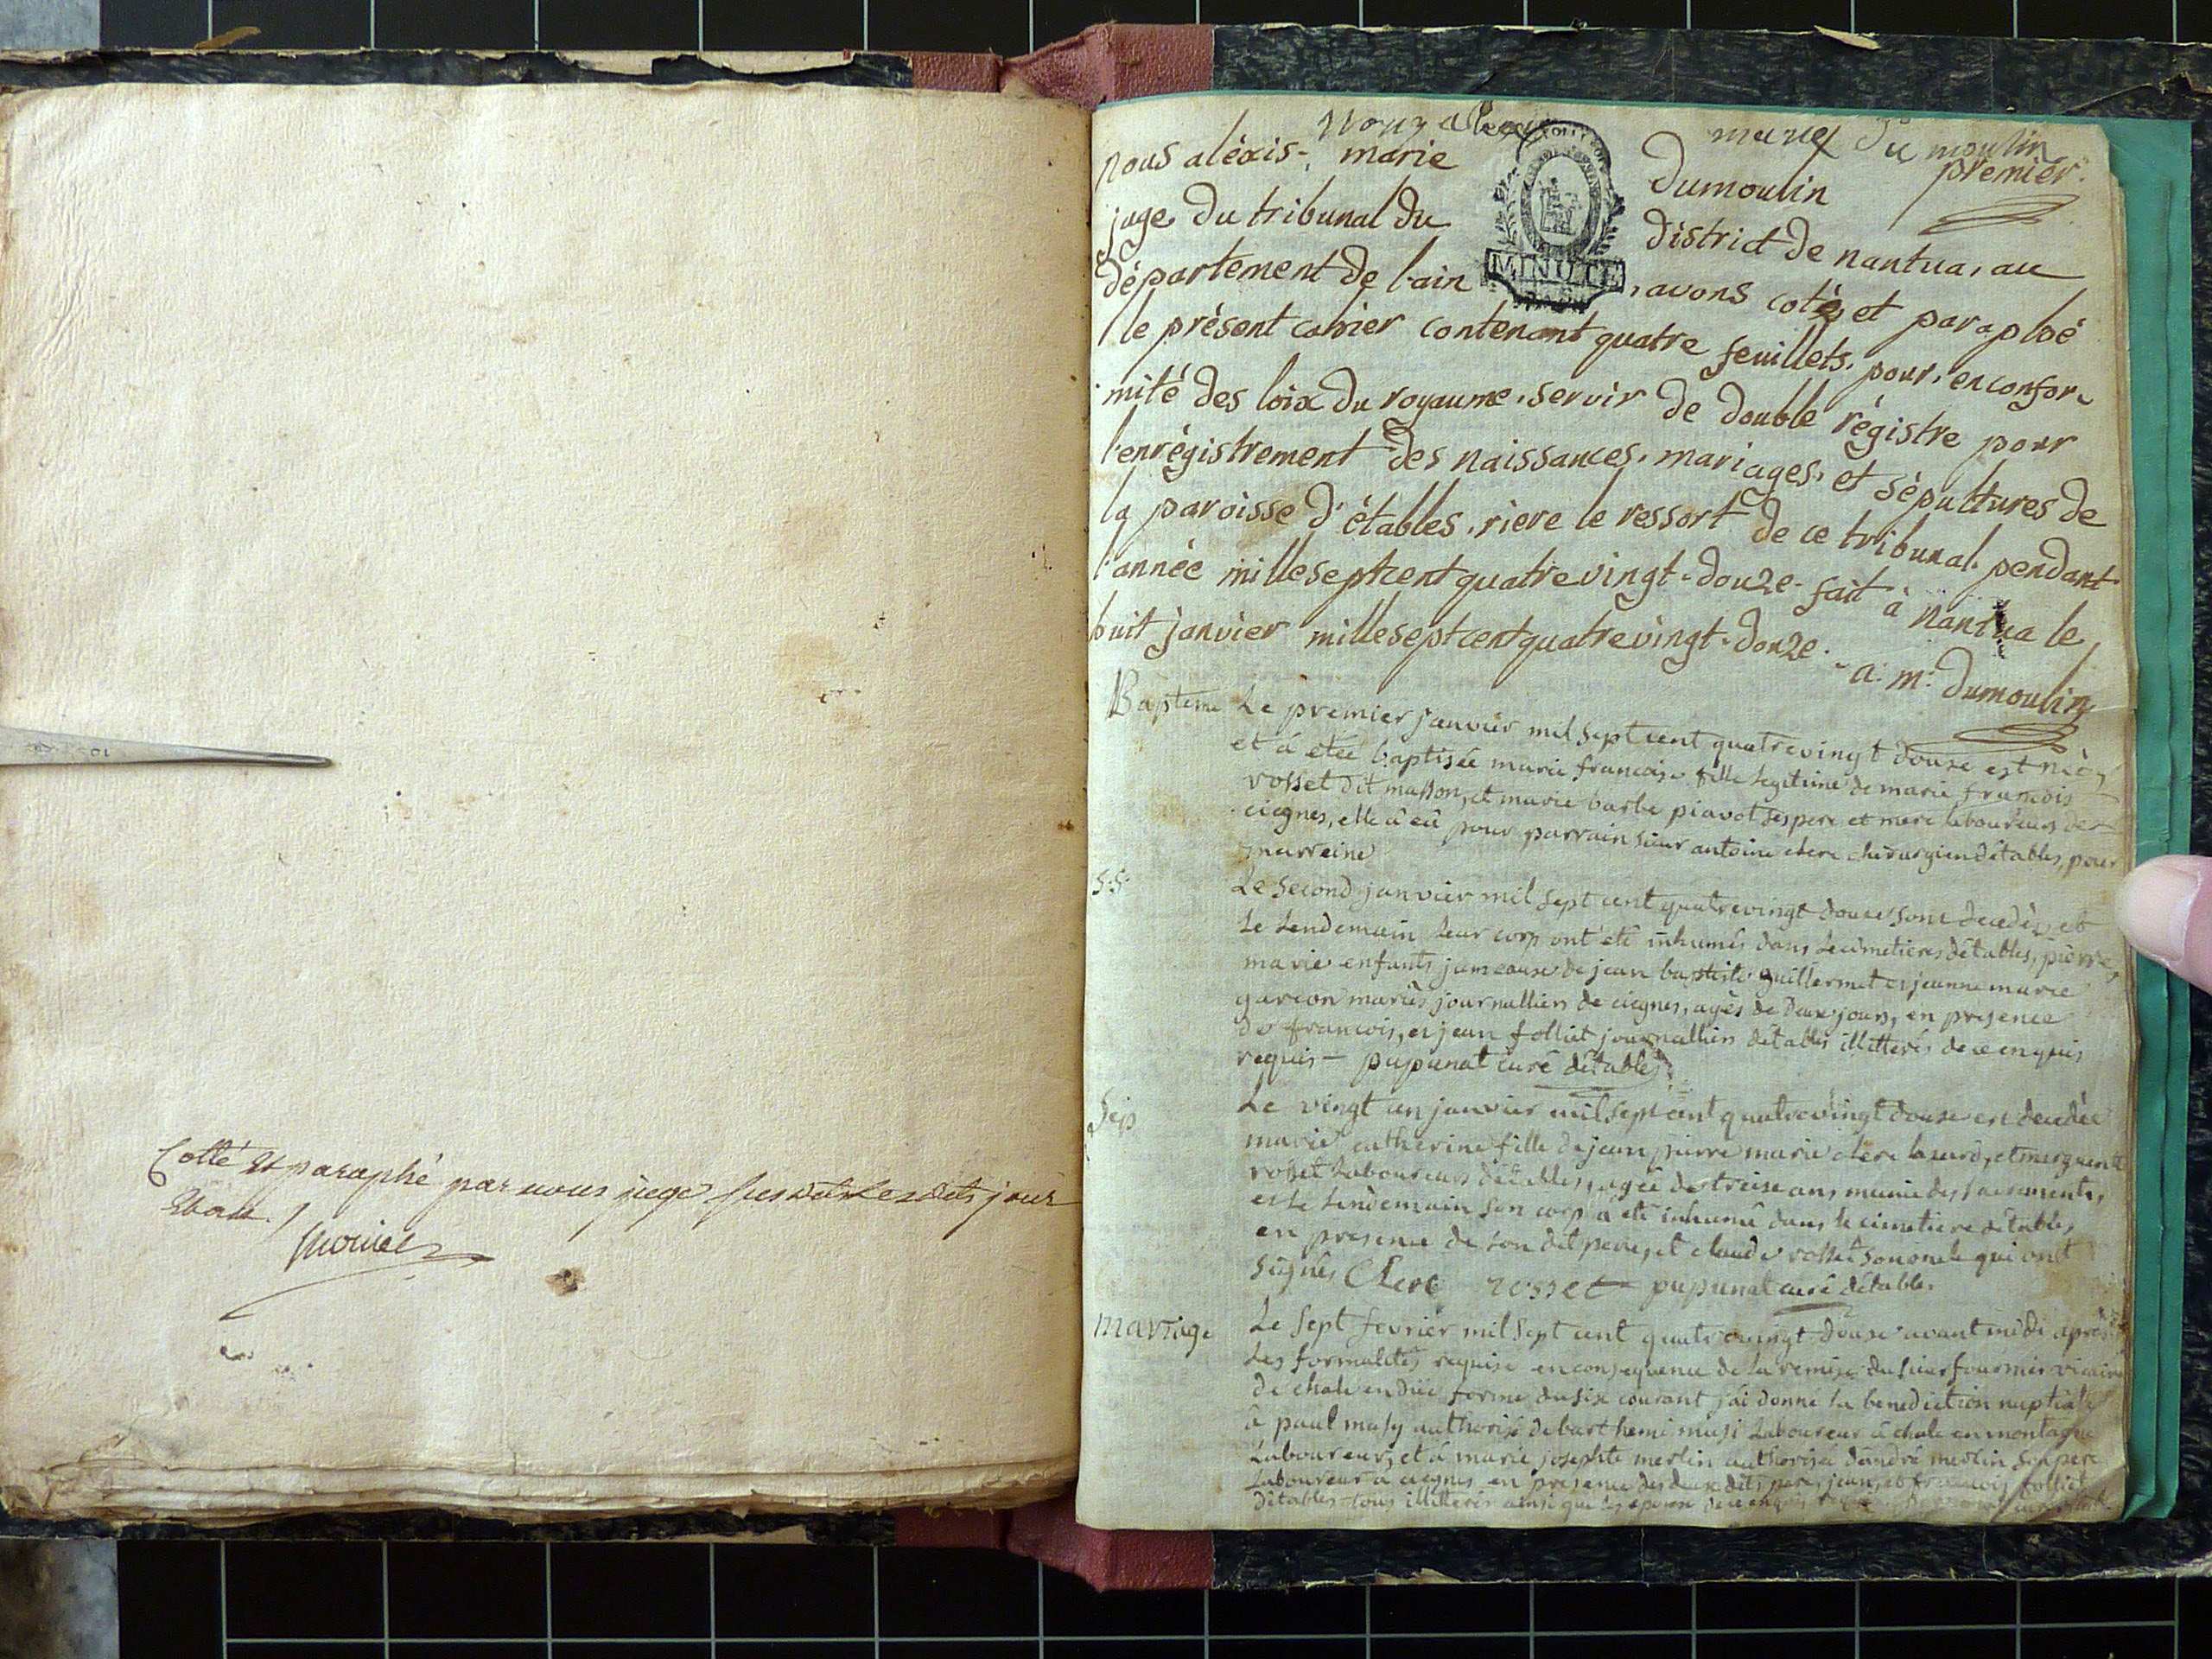 Cotté et paraphé par nous juge
nous alexis marie dumoulin
premier.
nous aléxis-marie Dumoulin
juge du tribunal du district de nantua, au
département de l'ain, avons coté, et paraphé
le présent cahier contenant quatre feuillets, pour, en confor-
mité des loix du royaume, servir de double régistre pour
l'enrégistrement des naissances, mariages, et sépultures de
la paroisse d'étables, riere le ressort de ce tribunal, pendant
l'année mille sept cent quatre vingt-douze. fait à nantua le
huit janvier mille sept cent quatre vingt-douze. a. m. dumoulin
MINUTE
Bapteme Le premier janvier mil sept cent quatrevingt douse est née,
et á etée baptisée marie francoise fille legitime de marie francois
rosset dit masson, et marie barbe piavot ses pere et mere laboureurs de
ciegnes, elle â eû pour parrain sieur antoine clerc chirurgien détables, pour
marreine
S.S. Le second janvier mil sept cent quatrevingt douse sont decedés et
le lendemain leur corp ont été inhumés dans le cimetiere détables, pierre,
marie enfants jumeaux de jean baptiste guillermet et jeanne marie
garcon mariés journalliers de ciegnes, agés de deux jours, en presence
de francois, et jean folliet journalliers détables illitterés de ce enquis
requis - pupunat curé détables
Sep Le vingt un janvier mil sept cent quatrevingt douse est decedée
marie catherine fille de jean pierre marie clerc et marguerite
rosset laboureurs détables, agée de treise ans, munie des sacrements,
et le lendemain son corp a eté inhumé dans le cimetiere détables
en presence de son dit pere, et claude rosset son oncle qui ont
signés Clerc rosset pupunat curé détables
mariage Le sept fevrier mil sept cent quatrevingt douse avant midi apres
les formalités requise en consequence de la remise du sieur fournier vicaire
de chale en düe forme du six courant j'ai donné la benediction nuptiale
â paul musy authorisé de barthemi musi laboureur â chale en montagne
laboureur, et â marie josephte merlin authorisée d'andré merlin son pere
laboureur a ciegnes en presence des deux dits peres, jean, et francois folliet
détables tous illitterés ainsi que les epoux de ce enquis